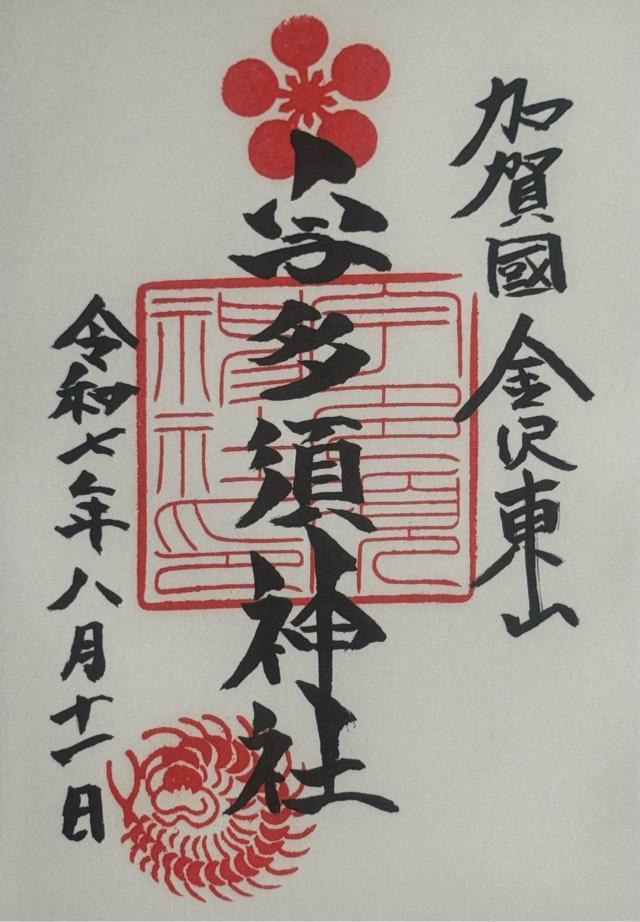 加賀國 金沢東山
宇多須神社
令和七年八月十一日